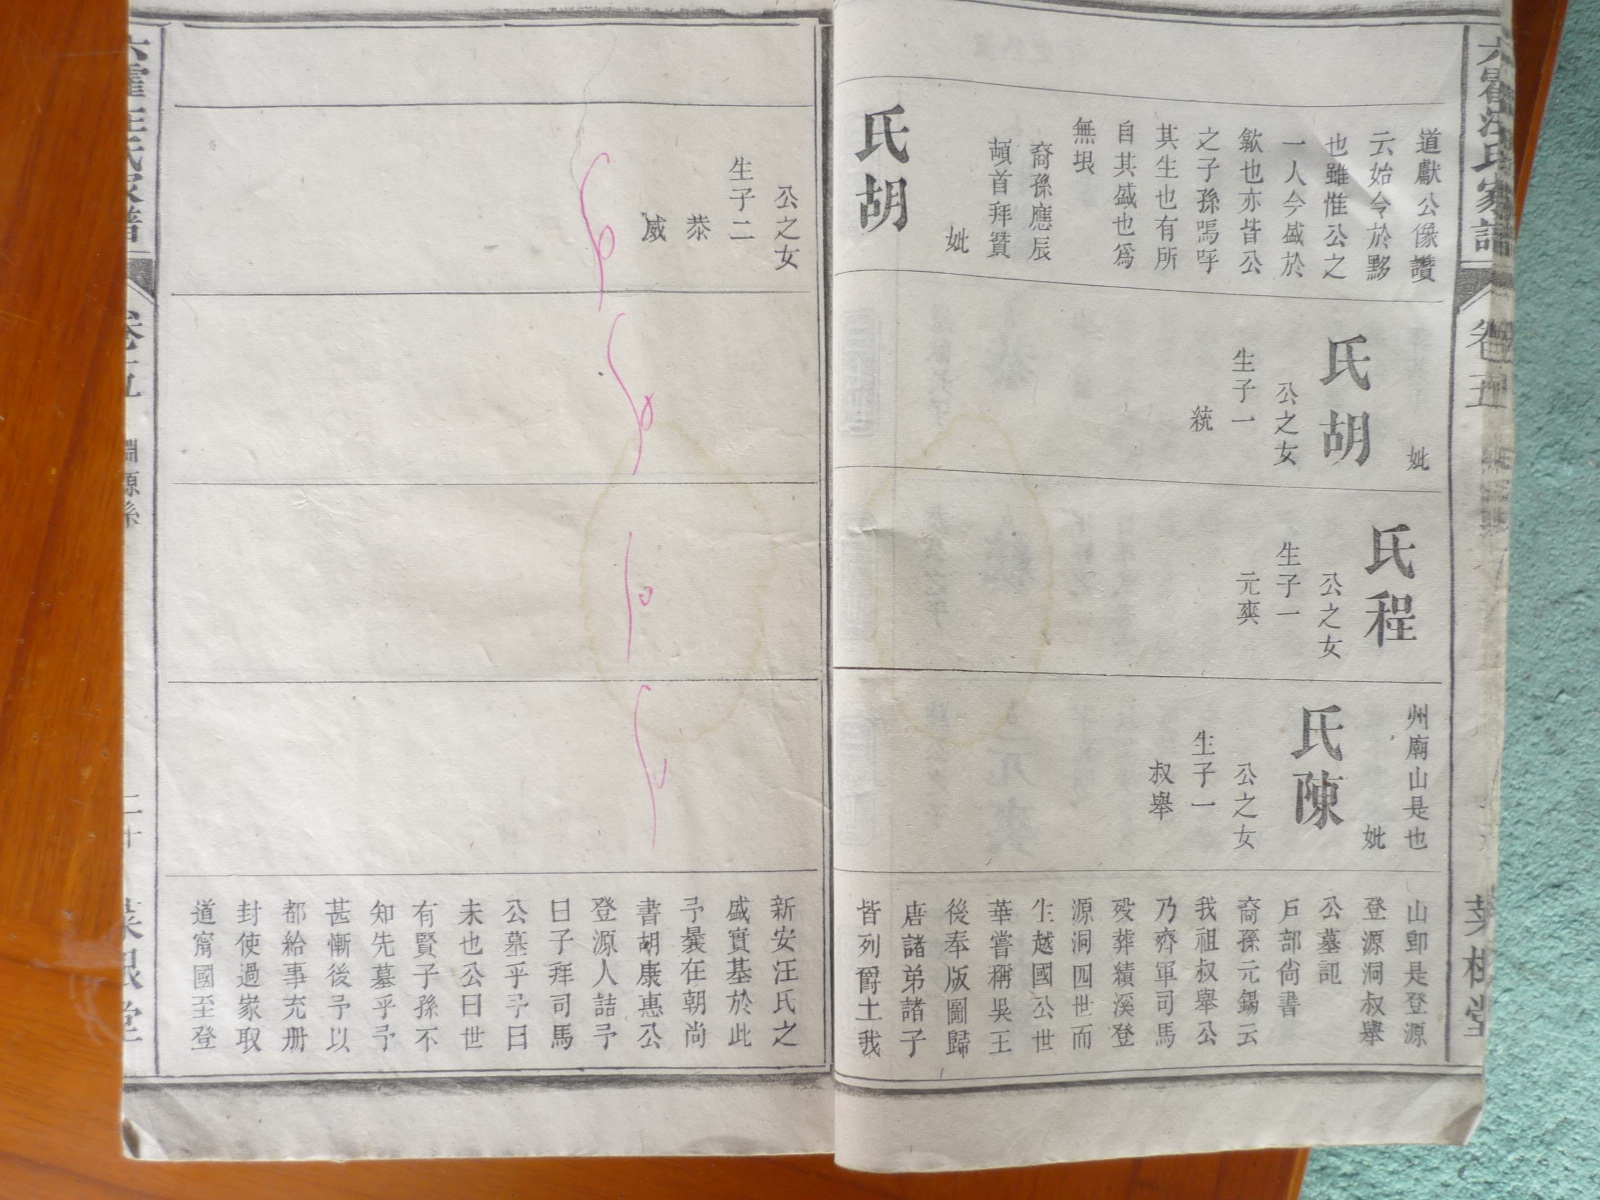 六霍汪氏家譜
卷五
菜根堂
道獻公像讚
云始令於黟
也雖惟公之
一人今盛於
歙也亦皆公
之子孫嗚呼
其生也有所
自其盛也爲
無垠
裔孫應辰
頓首拜贊
妣
氏胡
妣
氏胡
公之女
生子一
統
氏程
公之女
生子一
元奭
州廟山是也
妣
氏陳
公之女
生子一
叔舉
山卽是登源
登源洞叔舉
公墓記
戶部尙書
裔孫元錫云
我祖叔舉公
乃齊軍司馬
歿葬績溪登
源洞四世而
生越國公世
華嘗稱吳王
後奉版圖歸
唐諸弟諸子
皆列爵土我
公之女
生子二
恭
威
新安汪氏之
盛實基於此
予曩在朝尚
書胡康惠公
登源人詰予
曰子拜司馬
公墓乎予曰
未也公曰世
有賢子孫不
知先墓乎予
甚慚後予以
都給事充册
封使過家取
道甯國至登
六霍汪氏家譜
卷五
淵源系
二十
菜根堂